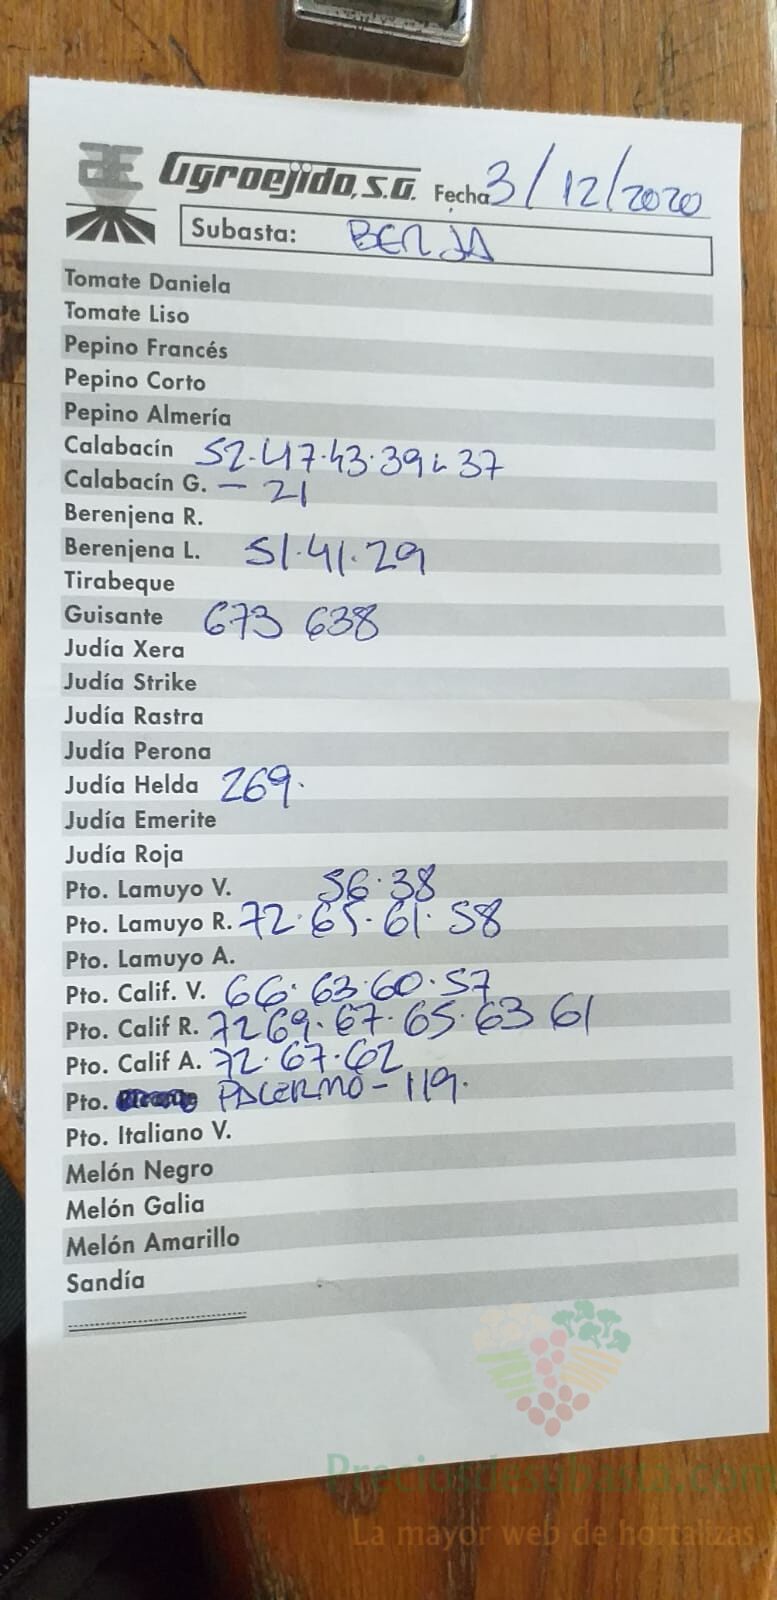 Agroejido, S.A. Fecha 3/12/2020
Subasta: BERJA
Tomate Daniela
Tomate Liso
Pepino Francés
Pepino Corto
Pepino Almería
Calabacín 52.47.43.39 37
Calabacín G. - 21
Berenjena R.
Berenjena L. 51.41.29
Tirabeque
Guisante 673 638
Judía Xera
Judía Strike
Judía Rastra
Judía Perona
Judía Helda 269.
Judía Emerite
Judía Roja
Pto. Lamuyo V. 56.38
Pto. Lamuyo R. 72.65.61.58
Pto. Lamuyo A.
Pto. Calif. V. 66.63.60.57
Pto. Calif R. 72 69.67.65.63 61
Pto. Calif A. 72.67.62
Pto. PALERMO - 119.
Pto. Italiano V.
Melón Negro
Melón Galia
Melón Amarillo
Sandía
Preciosdesubasta.com
La mayor web de hortalizas